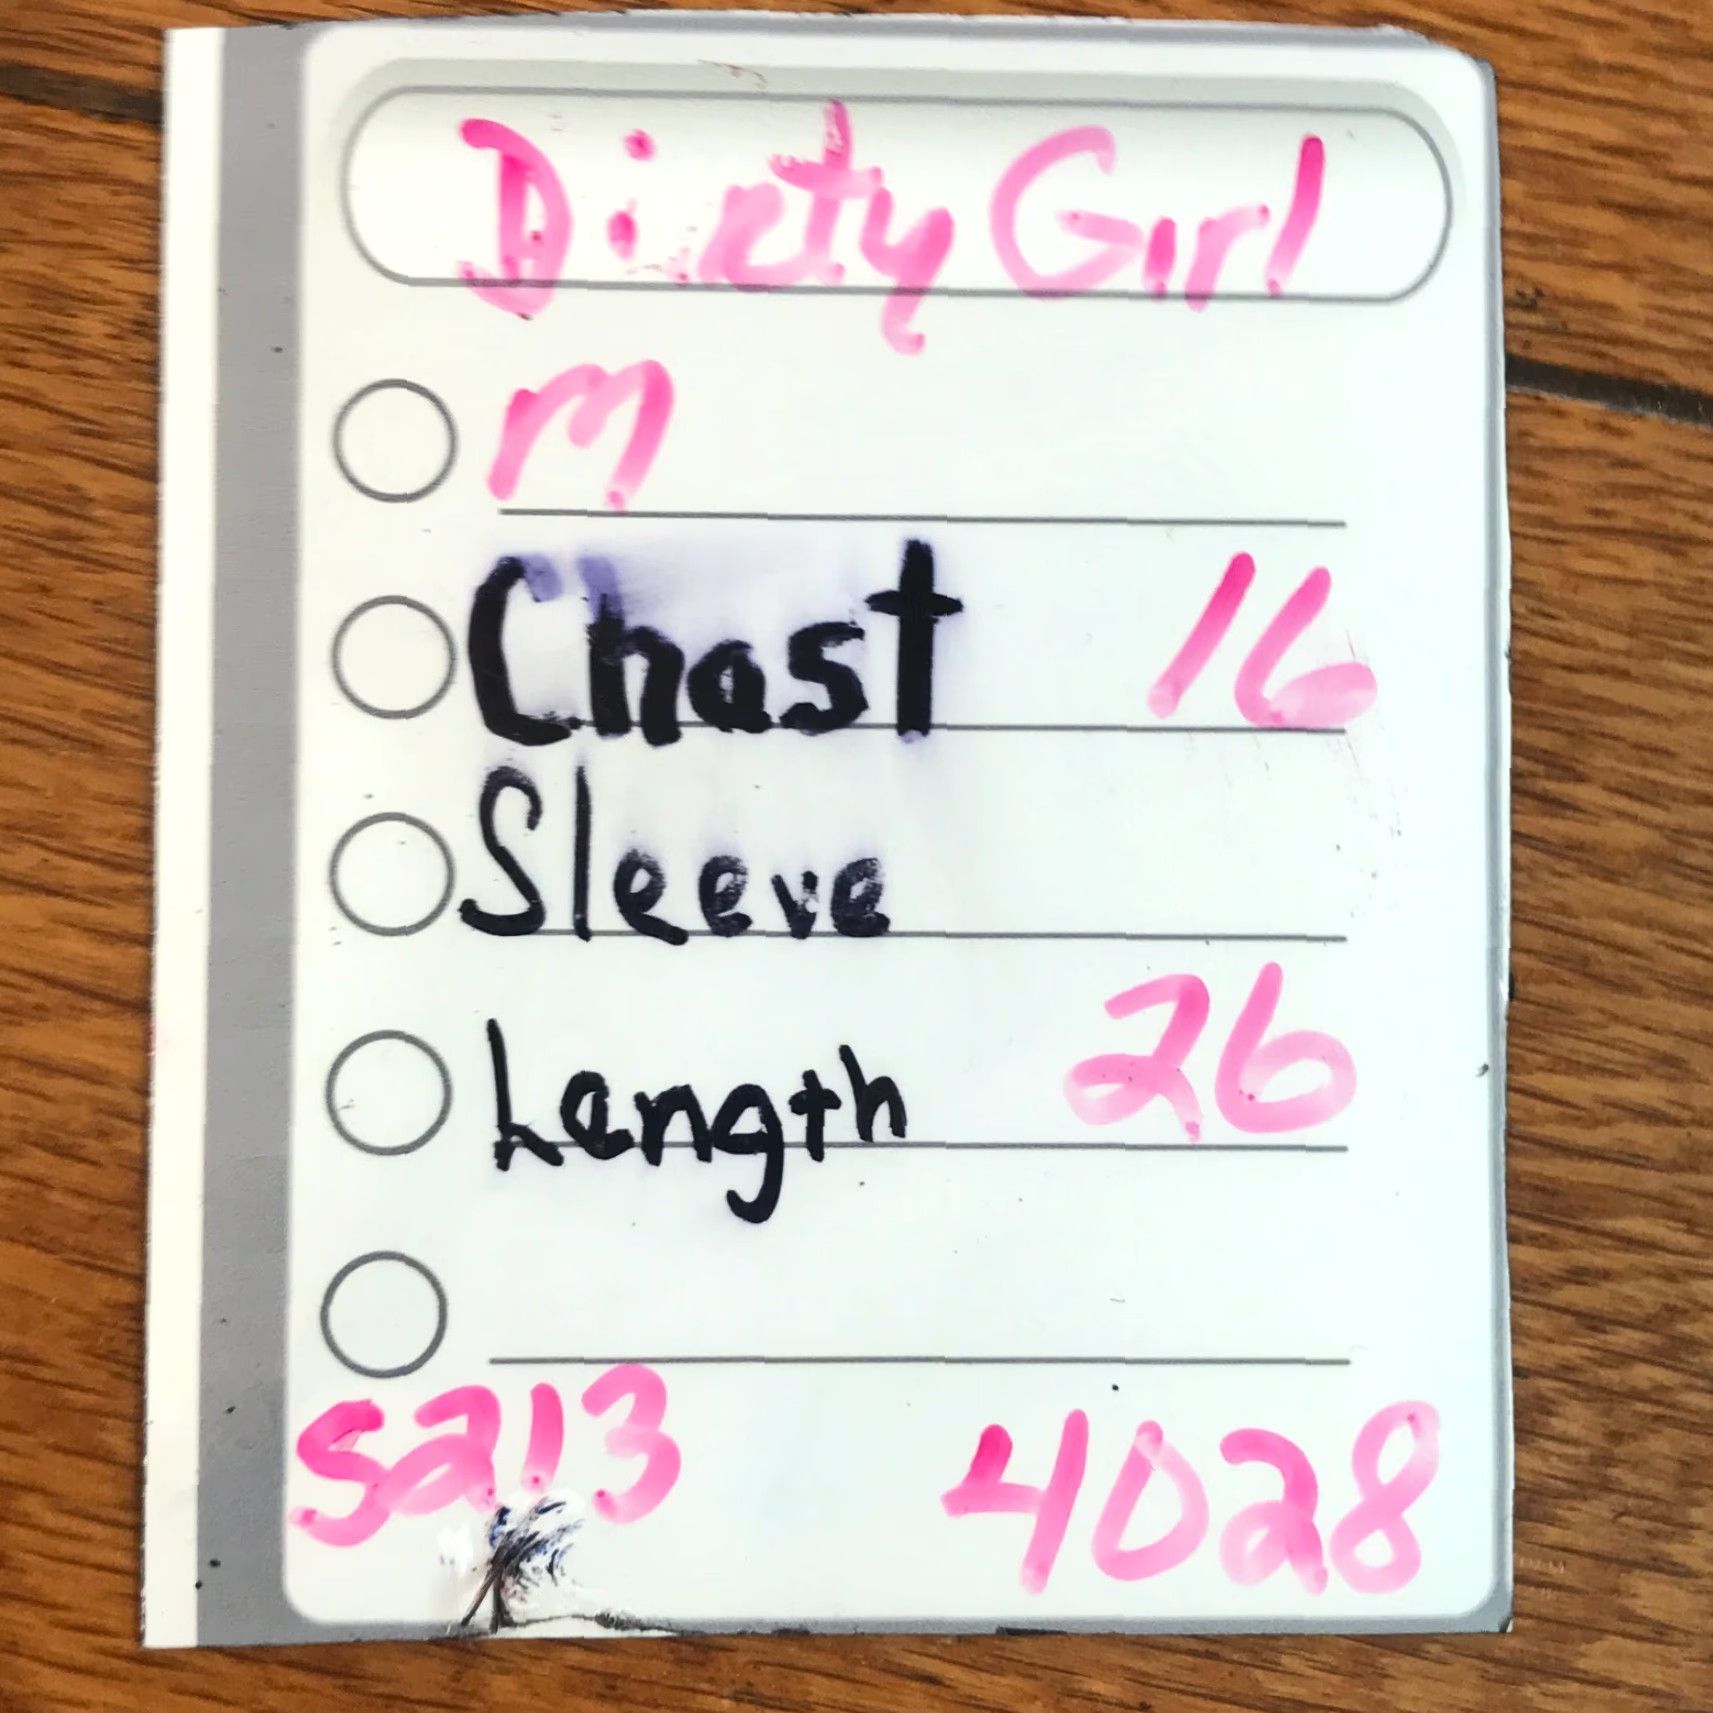 Dirty Girl
M
Chest 16
Sleeve
Length 26
S213 4028